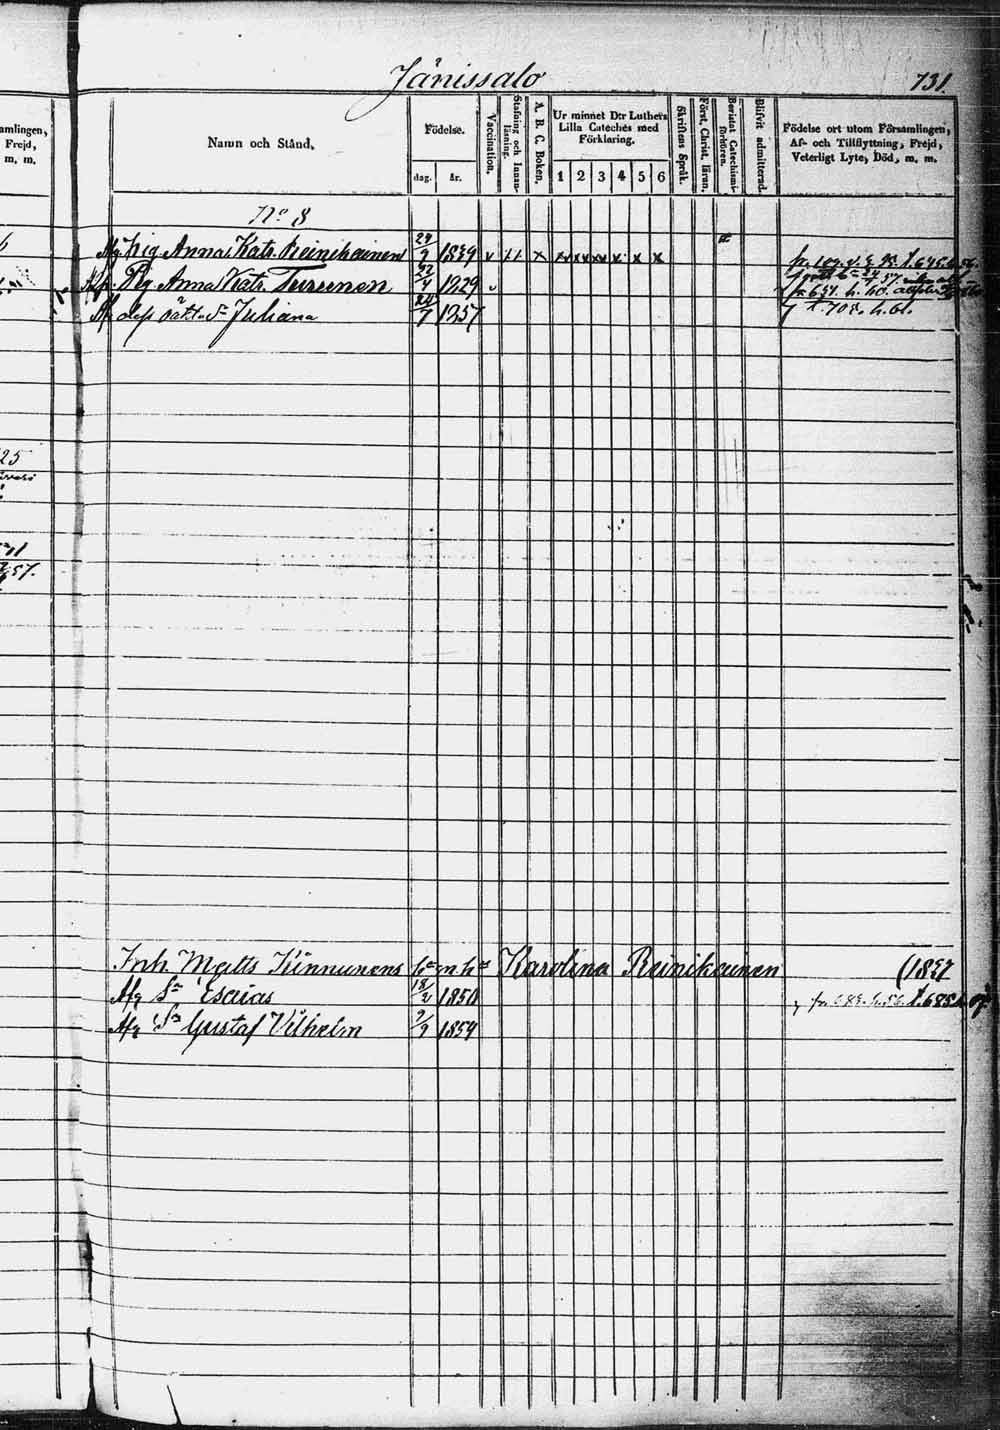 Jänissalo 731.
amlingen,
Frejd,
m. m.
Namn och Stånd.
Födelse.
dag. år.
Vaccination.
Stafning och Innan-
läsning.
A. B. C. Boken.
Ur minnet D:r Luthers
Lilla Cateches med
Förklaring.
1 2 3 4 5 6
Skriftens Språk.
Först. Christ. läran.
Bevistat Catechismi-
förhören.
Blifvit admitterad.
Födelse ort utom Församlingen,
Af- och Tillflyttning, Frejd,
Veterligt Lyte, Död, m. m.
No 8
Afg. Pig. Anna Katr. Reinikainen 9 1839 v x x x x x x x
Pig. Anna Katr. Turunen 22/4 1829 v
dess oäkt. dr Juliana 7 1857 t. 708. h. 61.
25
57.
Inh. Matts Kinnunens Karolina Reinikainen (1837
Afg Sn Esaias 18/2 1850 t. 685
Afg Sn Gustaf Vilhelm 9/9 1854